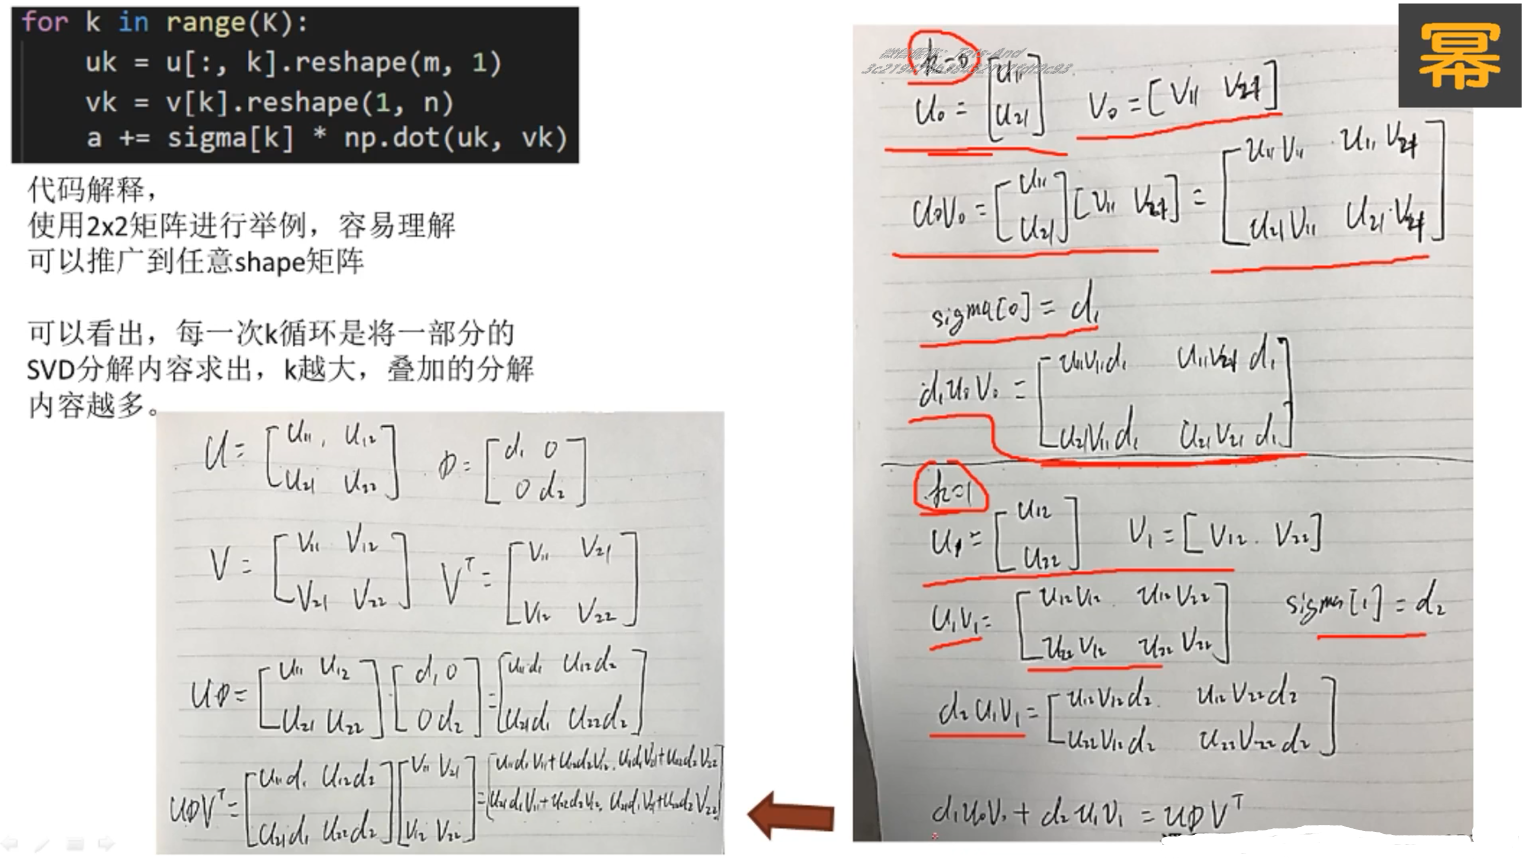 for k in range(K):
uk = u[:, k].reshape(m, 1)
vk = v[k].reshape(1, n)
a += sigma[k] * np.dot(uk, vk)
代码解释，
使用2x2矩阵进行举例，容易理解
可以推广到任意shape矩阵
可以看出，每一次k循环是将一部分的
SVD分解内容求出，k越大，叠加的分解
内容越多。
U = [u11, u12
u21 u22] Φ = [d1 0
0 d2]
V = [V11 V12
V21 V22] V^T = [V11 V21
V12 V22]
UΦ = [u11 u12
u21 u22] [d1 0
0 d2] = [u11d1 u12d2
u21d1 u22d2]
UΦV^T = [u11d1 u12d2
u21d1 u22d2] [V11 V21
V12 V22] = [u11d1V11+u12d2V12, u11d1V21+u12d2V22
u21d1V11+u22d2V12, u21d1V21+u22d2V22]
幂
k=0
U0 = [u11
u21] V0 = [V11 V21]
U0V0 = [u11
u21] [V11 V21] = [u11V11 u11V21
u21V11 u21V21]
sigma[0] = d1
d1U0V0 = [u11V11d1 u11V21d1
u21V11d1 u21V21d1]
k=1
U1 = [u12
u22] V1 = [V12 V22]
U1V1 = [u12V12 u12V22
u22V12 u22V22] sigma[1] = d2
d2U1V1 = [u12V12d2 u12V22d2
u22V12d2 u22V22d2]
d1U0V0 + d2U1V1 = UΦV^T